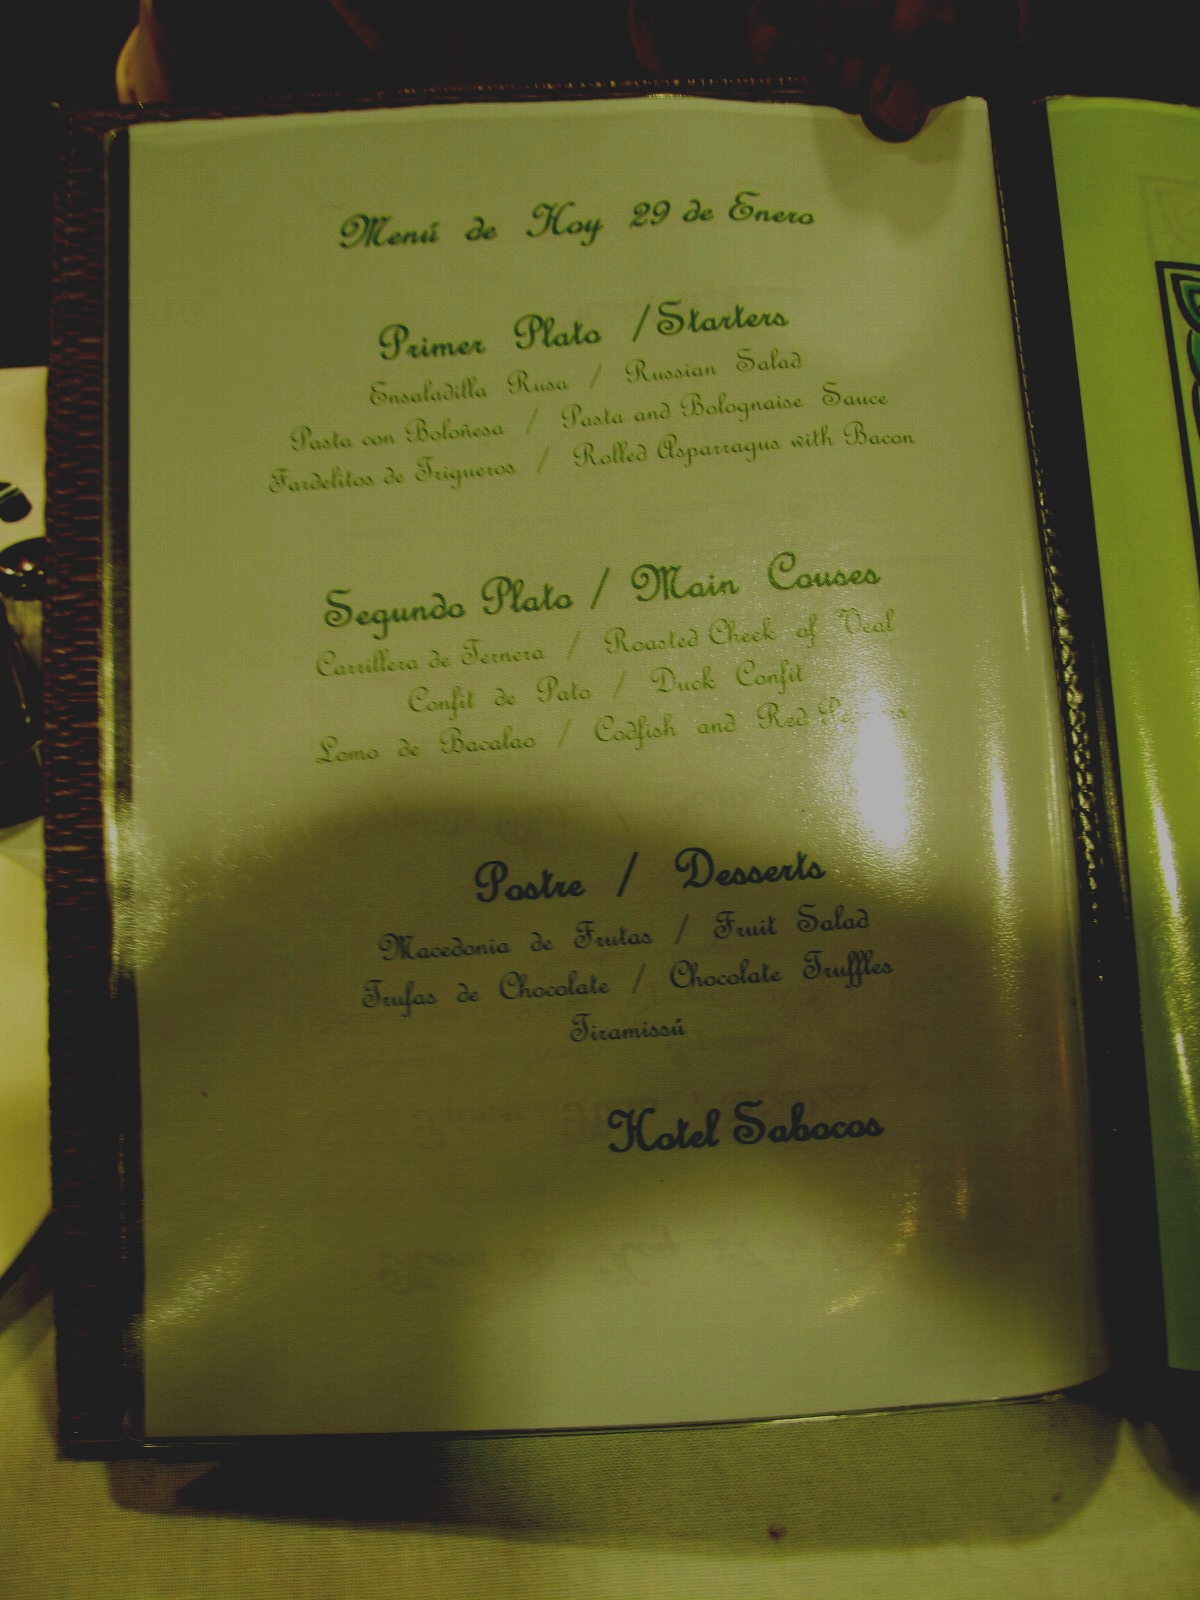 Menú de Hoy 29 de Enero
Primer Plato /Starters
Ensaladilla Rusa / Russian Salad
Pasta con Boloñesa / Pasta and Bolognaise Sauce
Fardelitos de Trigueros / Rolled Asparragus with Bacon
Segundo Plato / Main Couses
Carrillera de Ternera / Roasted Cheek of Veal
Confit de Pato / Duck Confit
Lomo de Bacalao / Codfish and Red
Postre / Desserts
Macedonia de Frutas / Fruit Salad
Trufas de Chocolate / Chocolate Truffles
Tiramissú
Hotel Sabocos